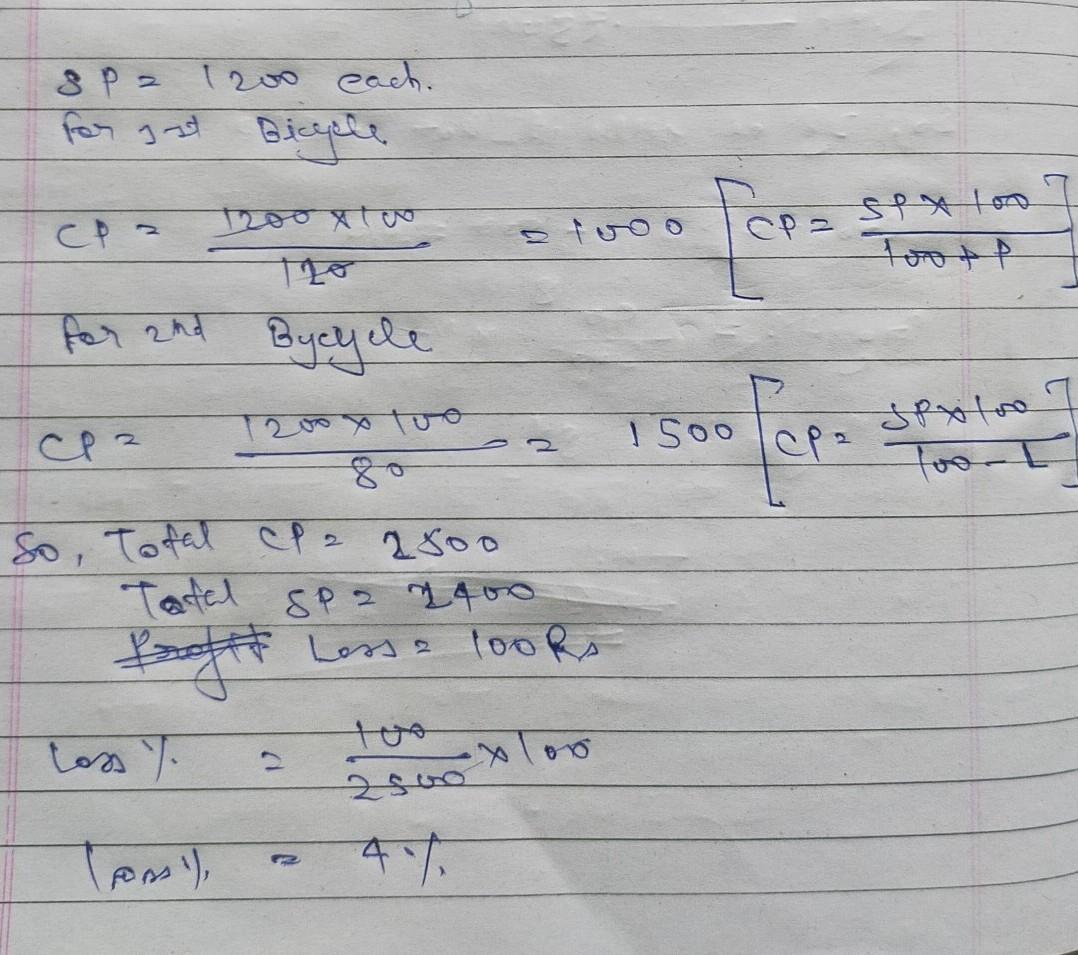 SP = 1200 each.
for 1st Bicycle
CP = 1200 × 100 / 120 = 1000 [CP = SP × 100 / 100 + P]
for 2nd Bycycle
CP = 1200 × 100 / 80 = 1500 [CP = SP × 100 / 100 - L]
So, Total CP = 2500
Total SP = 2400
Profit Loss = 100 Rs
Loss % = 100 / 2500 × 100
Loss % = 4 %